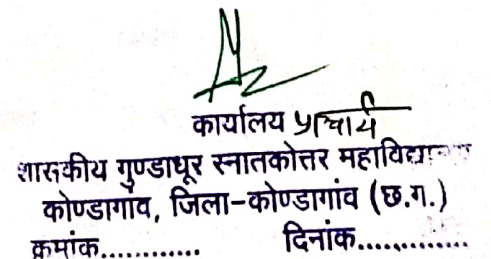 कार्यालय प्राचार्य
शासकीय गुण्डाधूर स्नातकोत्तर महाविद्यालय
कोण्डागांव, जिला-कोण्डागांव (छ.ग.)
क्रमांक............ दिनांक..............